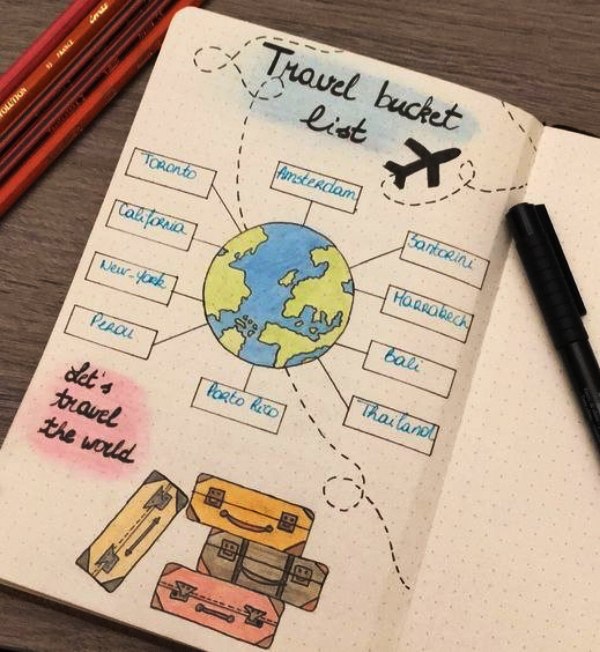 Travel bucket
list
Toronto
Amsterdam
California
Santorini
New-York
Marrakech
Perou
Bali
Porto Rico
Thailand
Let's
travel
the world